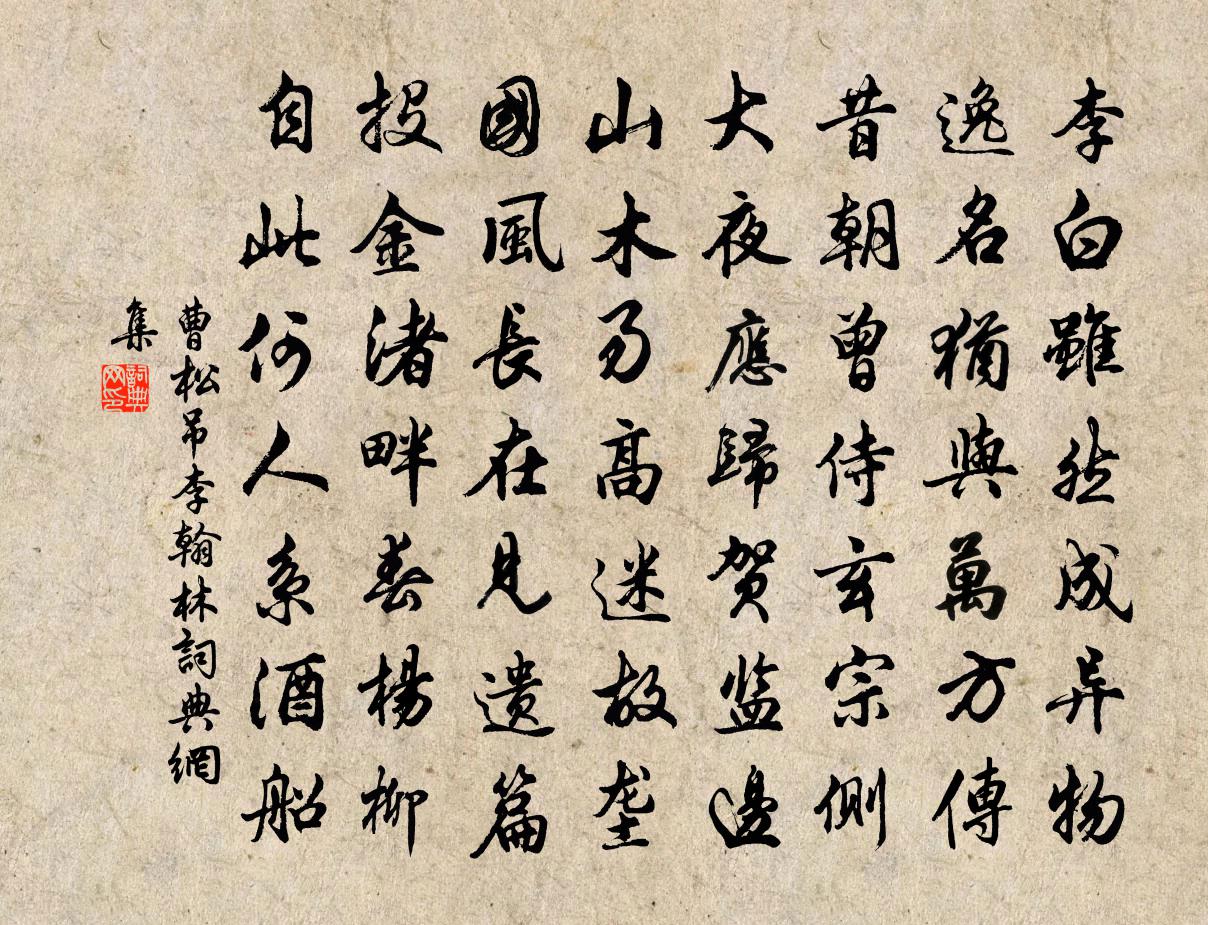 李白雖然成异物
逸名猶與萬方傳
昔朝曾侍玄宗側
大夜應歸賀监邊
山木易高迷故垄
國風長在見遗篇
投金渚畔春楊柳
自此何人系酒船
曹松吊李翰林詞典網
集
詞典网印